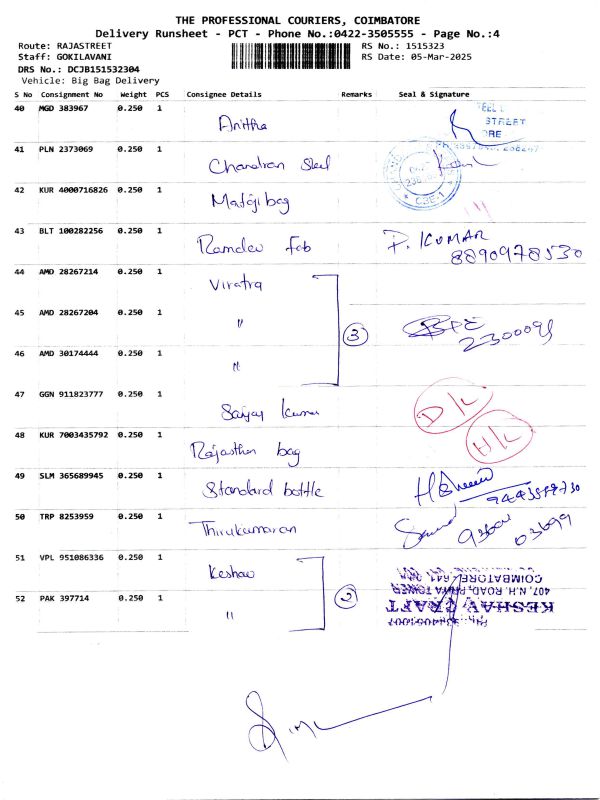 THE PROFESSIONAL COURIERS, COIMBATORE
Delivery Runsheet - PCT - Phone No.:0422-3505555 - Page No.:4
Route: RAJASTREET RS No.: 1515323
Staff: GOKILAVANI RS Date: 05-Mar-2025
DRS No.: DCJB151532304
Vehicle: Big Bag Delivery
S No Consignment No Weight PCS Consignee Details Remarks Seal & Signature
40 MGD 383967 0.250 1 Anitha
STREET
41 PLN 2373069 0.250 1 Chandran Steel
42 KUR 4000716826 0.250 1 Mataji bag
43 BLT 100282256 0.250 1 Ramdev Fab P. KUMAR
8890978530
44 AMD 28267214 0.250 1 Viratra
45 AMD 28267204 0.250 1 " 3
46 AMD 30174444 0.250 1 "
47 GGN 911823777 0.250 1 Sanjay Kumar D/L
48 KUR 7003435792 0.250 1 Rajasthan bag H/L
49 SLM 365689945 0.250 1 Standard bottle
50 TRP 8253959 0.250 1 Thirukumaran
51 VPL 951086336 0.250 1 Keshav
52 PAK 397714 0.250 1 " 2
KESHAV CRAFT
407, N.H. ROAD, PRIYA TOWER
COIMBATORE